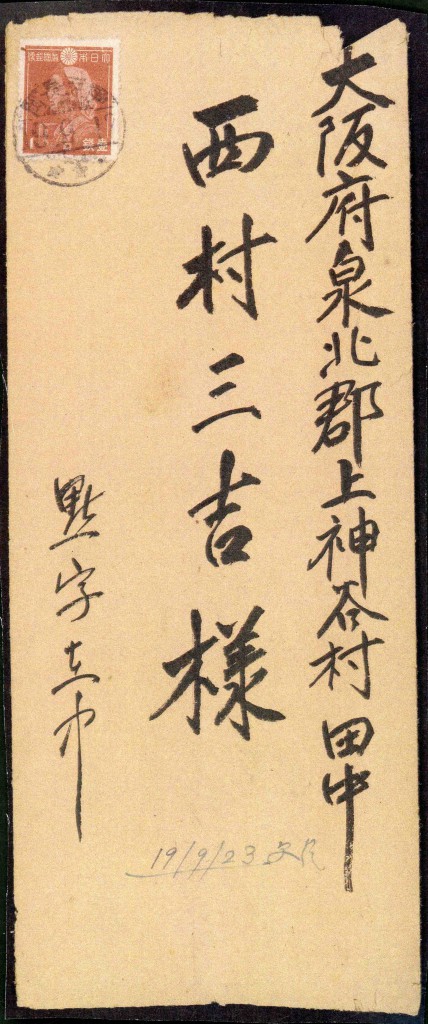 大阪府泉北郡上神谷村田中
西村三吉様
點字在中
19/9/23
大日本帝國郵便
壹錢